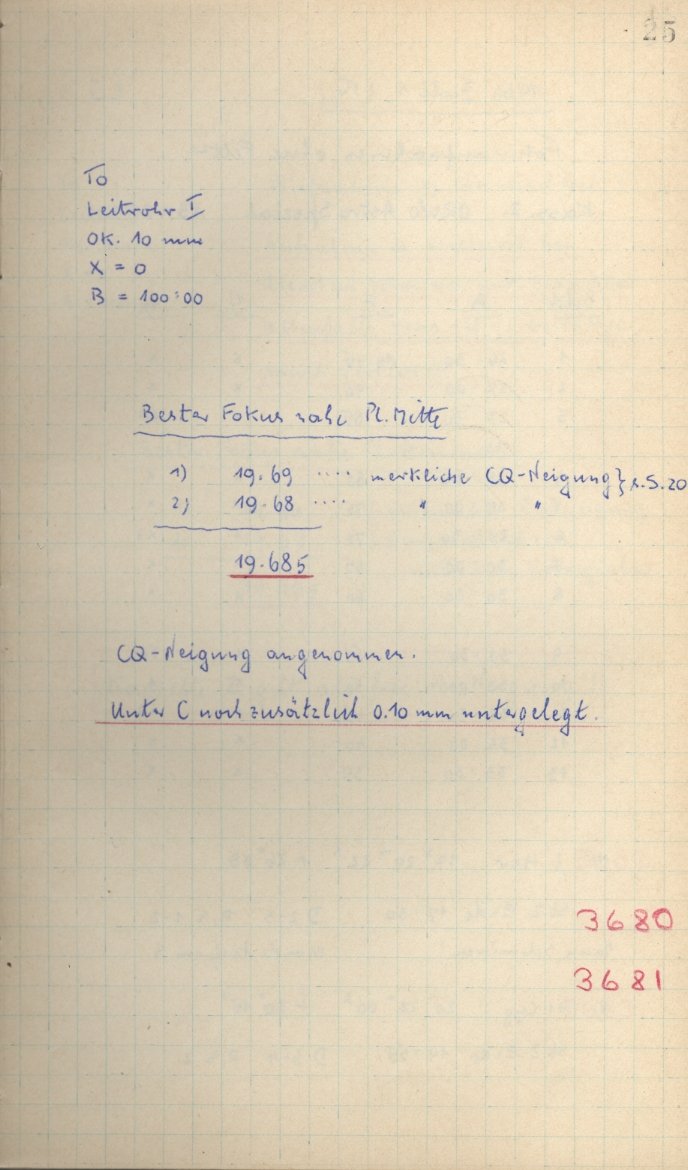 25
To
Leitrohr I
OK. 10 mm
X = 0
B = 100:00
Bester Fokus nahe Pl. Mitte
1) 19.69 .... merkliche CQ-Neigung } s. S. 20
2) 19.68 .... " "
19.685
CQ-Neigung angenommen.
Unter C noch zusätzlich 0.10 mm untergelegt.
3680
3681